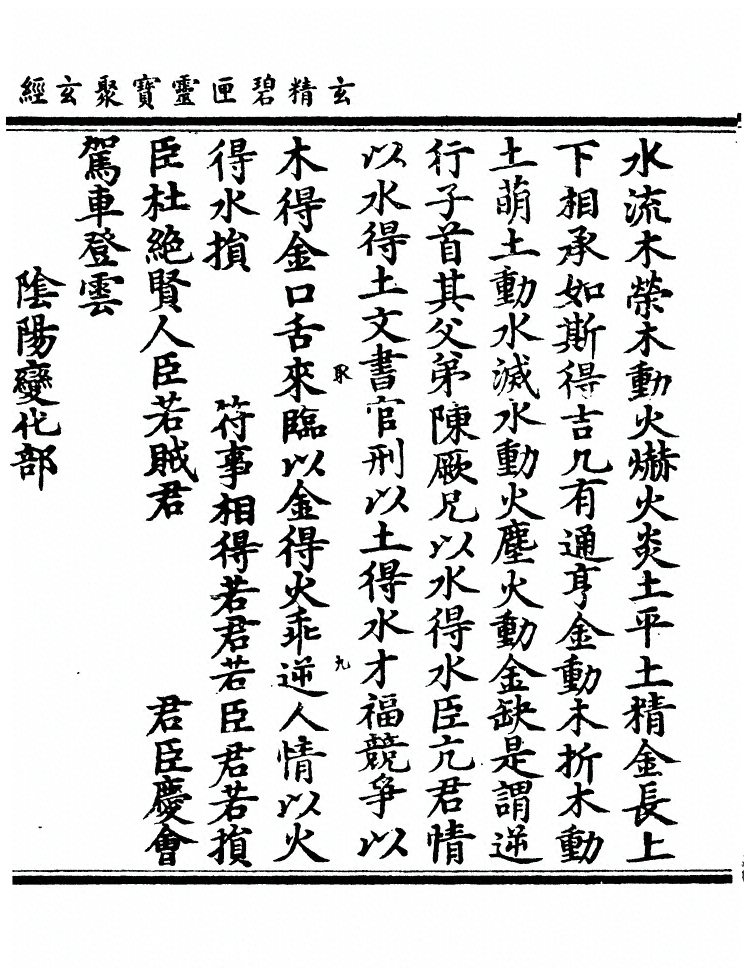 玄精碧匣靈寶聚玄經
水流木榮木動火爀火炎土平土精金長上
下相承如斯得吉凡有通亨金動木折木動
土萌土動水滅水動火塵火動金缺是謂逆
行子首其父弟陳厥兄以水得水臣亢君情
以水得土文書官刑以土得水才福競爭以
木得金口舌來臨以金得火乖逆人情以火
得水損 符事相得若君若臣君若損
臣杜絶賢人臣若賊君 君臣慶會
駕車登雲
陰陽變化部